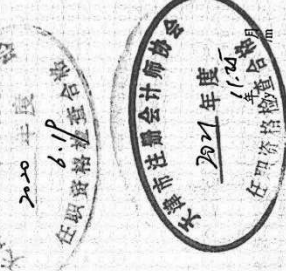 2020 年度
6.19
任职资格检查合格
天津市注册会计师协会
2021 年度
11.25
年 月
/m
任职资格检查合格